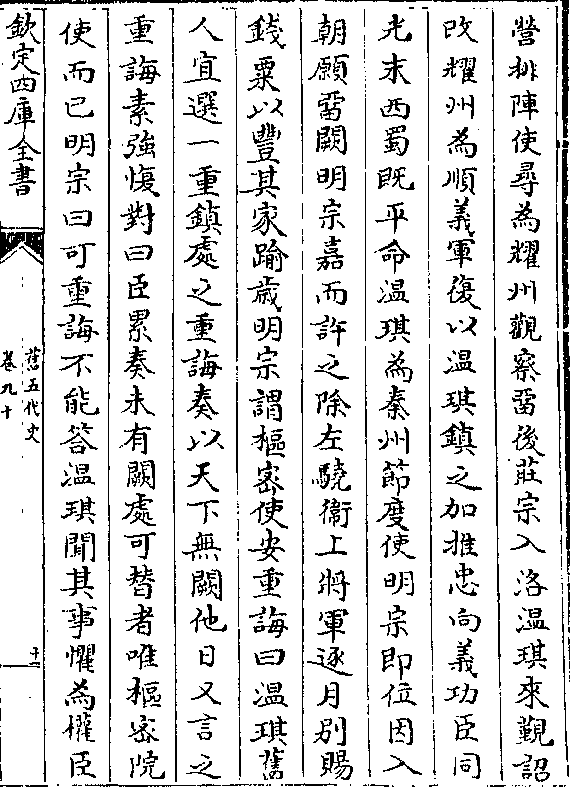 營排陣使尋為耀州觀察留後莊宗入洛温琪來覲詔
改耀州為順義軍復以温琪鎮之加推忠向義功臣同
光末西蜀既平命温琪為秦州節度使明宗即位因入
朝願留闕明宗嘉而許之除左驍衛上將軍逐月别賜
錢粟以豐其家踰歳明宗謂樞密使安重誨曰温琪舊
人宜選一重鎮處之重誨奏以天下無闕他日又言之
重誨素強愎對曰臣累奏未有闕處可替者唯樞密院
使而已明宗曰可重誨不能答温琪聞其事懼為權臣
欽定四庫全書
舊五代史
卷九十
十一